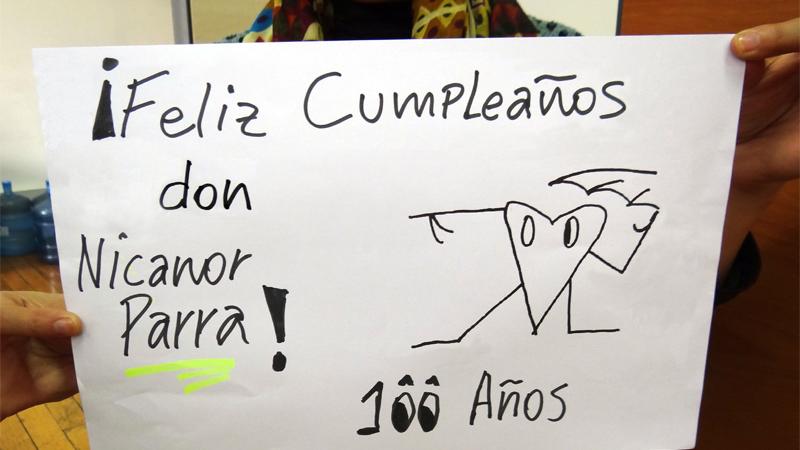 ¡Feliz Cumpleaños
don
Nicanor
Parra!
100 Años